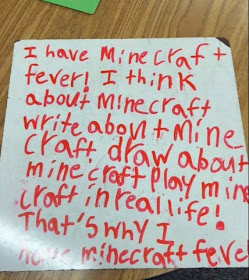 I have Minecraft
fever! I think
about minecraft
write about mine
craft draw about
minecraft play mine
craft in real life!
That's why I
have minecraft feve